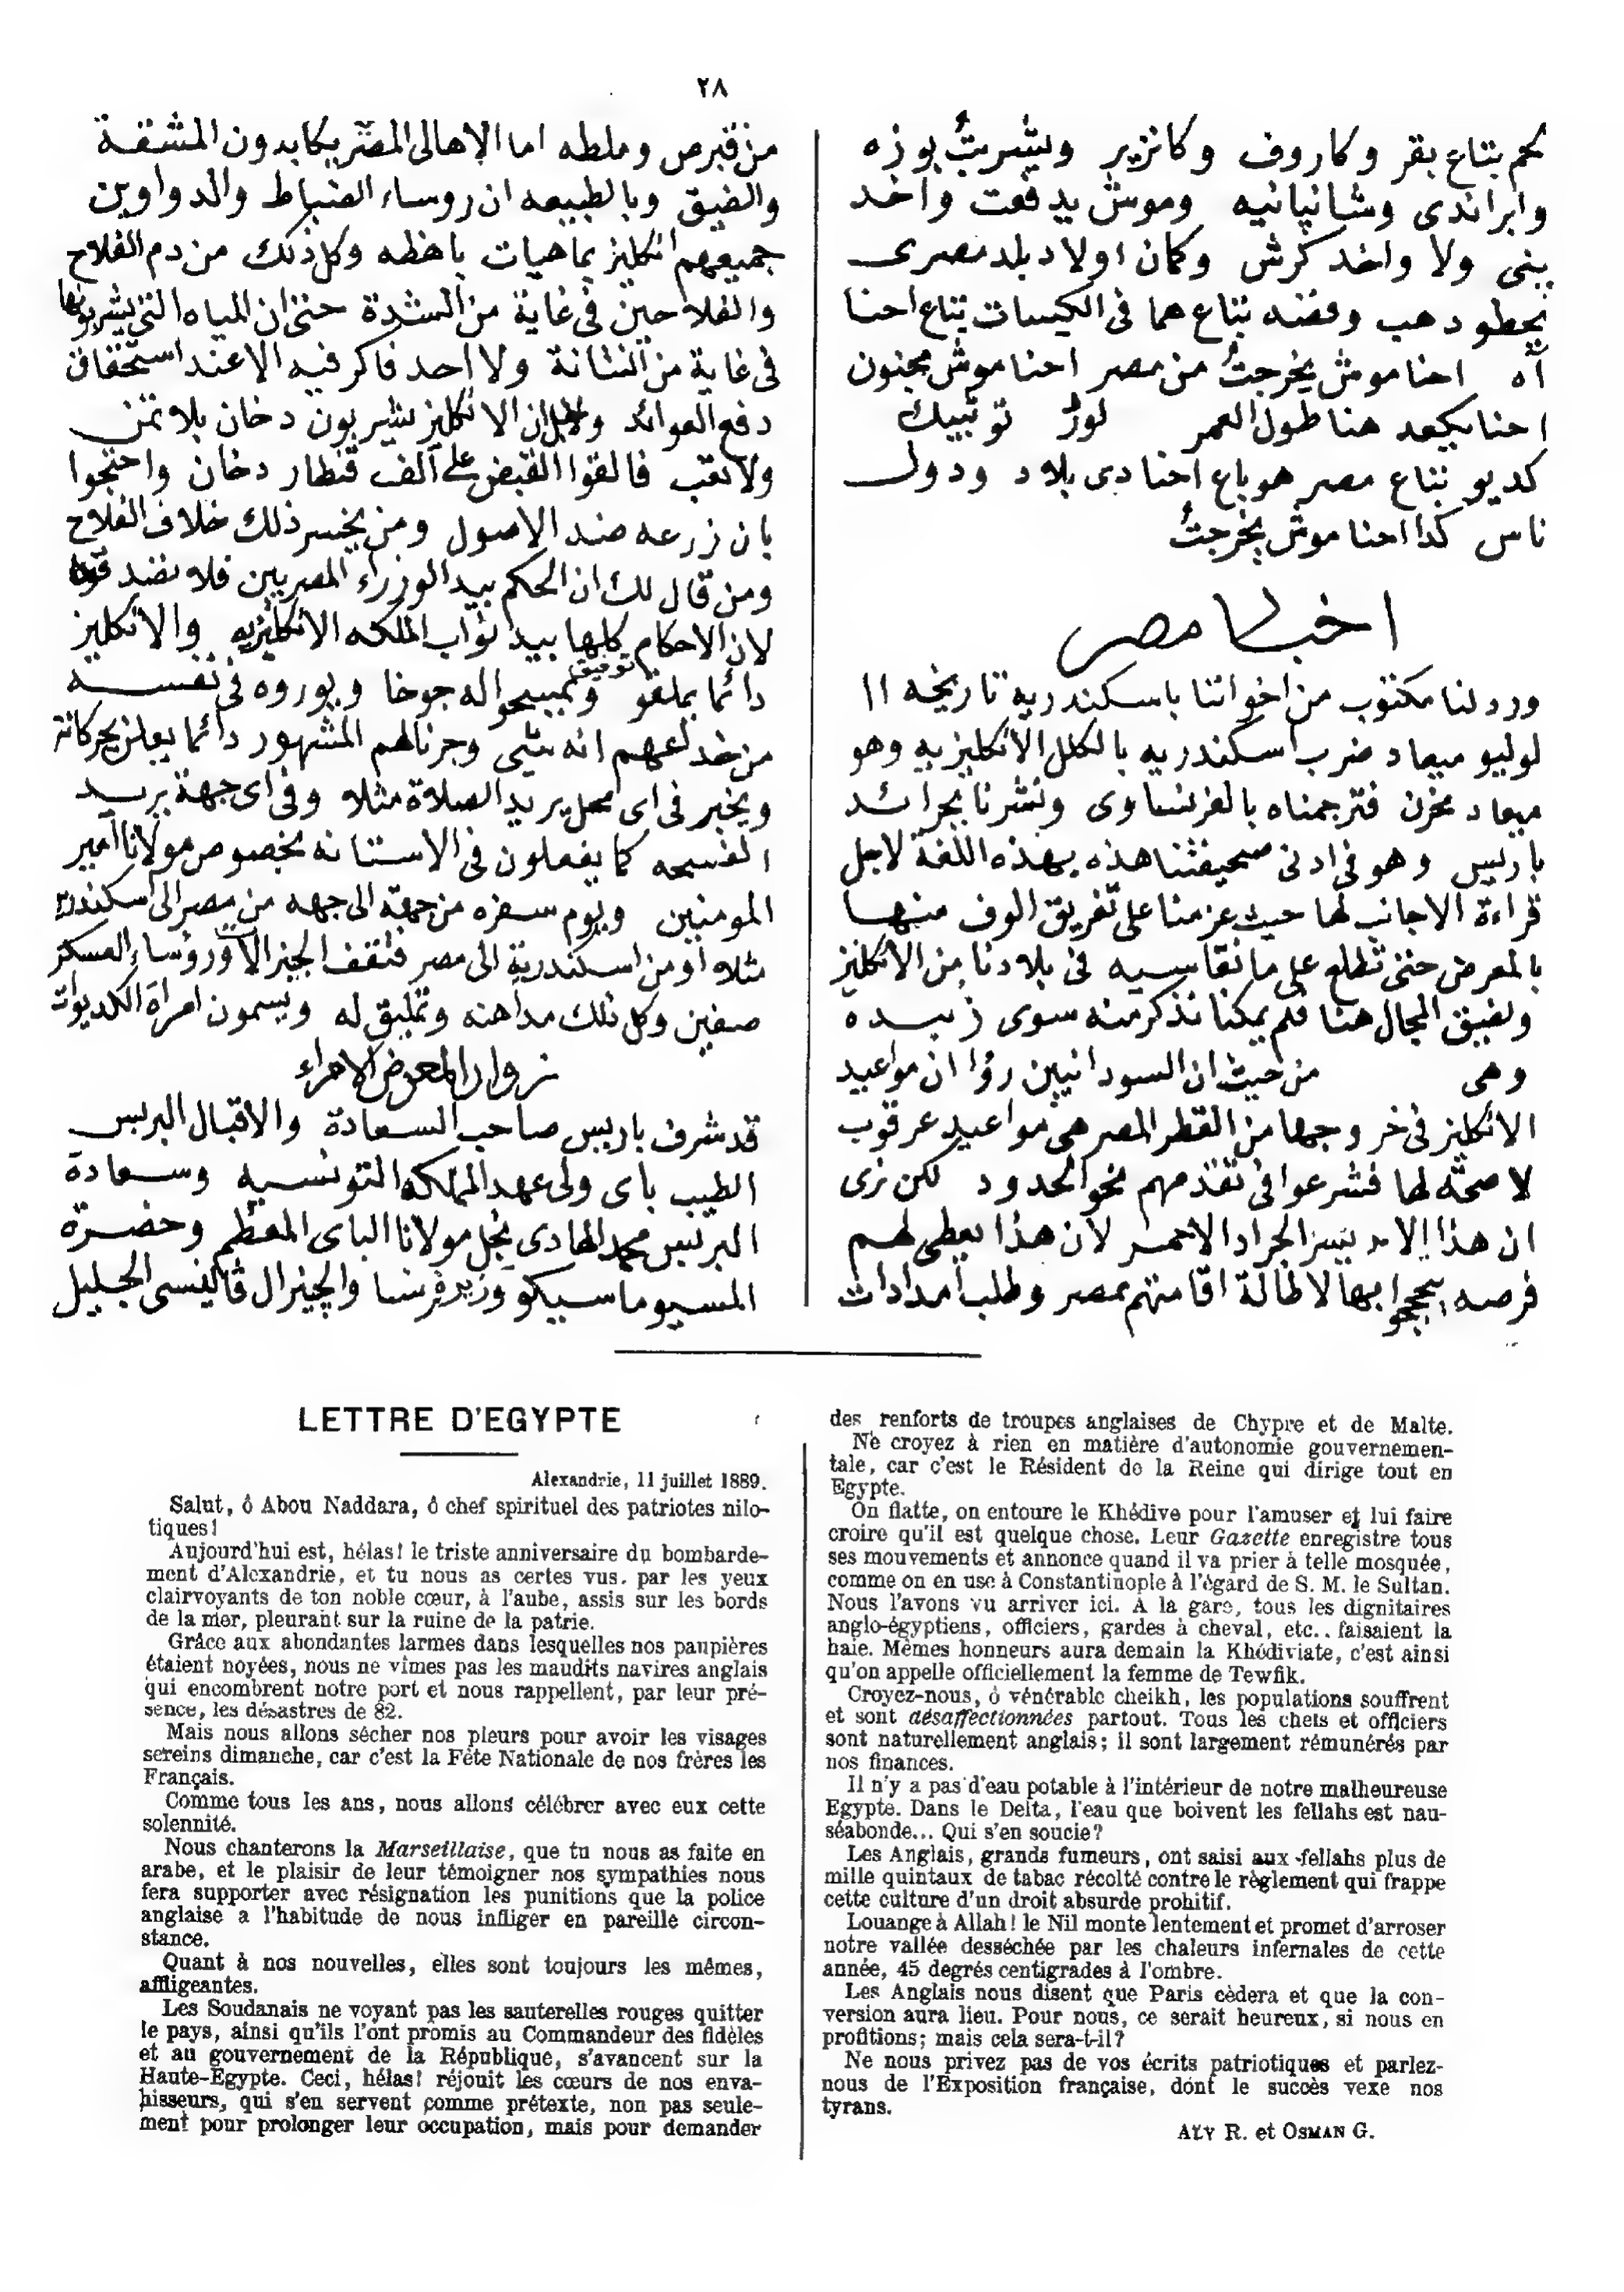 ٢٨
لحم بتاع بقر وكاروف وكانزير وبتشربتُ بوزه
وابراندى وشانپانيه وموش يدفعت واخد
بنى ولا واخد كرش وكمان اولاد بلد مصرى
بحطو دهب وفضه بتاع هما فى الكيسات بتاع احنا
آه احنا موش يخرجتُ من مصر احنا موش مجنون
احنا يكعد هنا طول العمر لورْد توفيك
كديو بتاع مصر هو باع احنا دى بلاد ودول
ناس كدا احنا موش يخرجتُ
اخبار مصر
ورد لنا مكتوب من اخواتنا باسكندرية تاريخه ١١
لوليو ميعاد ضرب اسكندريه بالكلل الانكليزيه وهو
ميعاد محزن فترجمناه بالفرنساوى ونشرنا بجرائد
باريس وهو فى ادنى صحيفتنا هذه بهذه اللغة لاجل
قراءة الاجانب لها حيث عزمنا على تفريق الوف منها
بالمعرض حتى تطلع على ما نقاسيه فى بلادنا من الانكليز
ولضيق المجال هنا فلم يمكنا نذكر منه سوى زبده
وهى من حيث ان السودانيين رؤا ان مواعيد
الانكليز فى خروجها من القطر المصر هى مواعيد عرقوب
لا صحة لها فشرعوا فى تقدمهم نحو الحدود لكن نرى
ان هذا الامر يسر الجراد الاحمر لان هذا يعطى لهم
فرصه يحججوا بها لاطالة اقامتهم بمصر وطلب امدادات
من قبرص وملطه اما الاهالى المصر يكابدون المشقة
والضيق وبالطبيعه ان روساء الضباط والدواوين
جميعهم انكليز بماهيات باهظه وكل ذلك من دم الفلاح
والفلاحين فى غاية من الشدة حتى ان المياه التى يشربونها
فى غاية من النتانة ولا احد فاكر فيه الا عند استحقاق
دفع العوائد ولاجل ان الانكليز يشربون دخان بلا تمن
ولا تعب فالقوا القبض على الف قنطار دخان واحتجوا
بان زرعه ضد الاصول ومن يخسر ذلك خلاف الفلاح
ومن قال لك ان الحكم بيد الوزراء المصريين فلا تصدق قوله
لان الاحكام كلها بيد نواب الملكه الانكليزيه والانكليز
دائما يملقو توفيق ويمسحوا له جوخا ويوروه فى نفسه
من خداعهم انه شيى وجرنالهم المشهور دائما يعلن بحركاته
ويخبر فى اى محل يريد الصلاة مثلا وفى اى جهة يريد
الفسحه كما يفعلون فى الاستانه بخصوص مولانا امير
المومنين ويوم سفره من جهة الى جهه من مصر الى اسكندريه
مثلا او من اسكندرية الى مصر فتقف الجنرالات ورؤساء العسكر
صفين وكل ذلك مداهنه وتمليق له ويسمون امراة الكديوات
زوار المعرض الامراء
قد شرف باريس صاحب السعادة والاقبال البرنس
الطيب باى ولى عهد المملكه التونسيه وسعادة
البرنس محمد الهادى نجل مولانا الباى المعظم وحضرة
المسيو ماسيكو وزير فرنسا والچنرال ڤالينسى الجليل
LETTRE D'EGYPTE
Alexandrie, 11 juillet 1889.
Salut, ô Abou Naddara, ô chef spirituel des patriotes nilo-
tiques!
Aujourd'hui est, hélas! le triste anniversaire du bombarde-
ment d'Alexandrie, et tu nous as certes vus. par les yeux
clairvoyants de ton noble cœur, à l'aube, assis sur les bords
de la mer, pleurant sur la ruine de la patrie.
Grâce aux abondantes larmes dans lesquelles nos paupières
étaient noyées, nous ne vîmes pas les maudits navires anglais
qui encombrent notre port et nous rappellent, par leur pré-
sence, les désastres de 82.
Mais nous allons sécher nos pleurs pour avoir les visages
sereins dimanche, car c'est la Fête Nationale de nos frères les
Français.
Comme tous les ans, nous allons célébrer avec eux cette
solennité.
Nous chanterons la Marseillaise, que tu nous as faite en
arabe, et le plaisir de leur témoigner nos sympathies nous
fera supporter avec résignation les punitions que la police
anglaise a l'habitude de nous infliger en pareille circon-
stance.
Quant à nos nouvelles, elles sont toujours les mêmes,
affligeantes.
Les Soudanais ne voyant pas les sauterelles rouges quitter
le pays, ainsi qu'ils l'ont promis au Commandeur des fidèles
et au gouvernement de la République, s'avancent sur la
Haute-Egypte. Ceci, hélas! réjouit les cœurs de nos enva-
hisseurs, qui s'en servent comme prétexte, non pas seule-
ment pour prolonger leur occupation, mais pour demander
des renforts de troupes anglaises de Chypre et de Malte.
Ne croyez à rien en matière d'autonomie gouvernemen-
tale, car c'est le Résident de la Reine qui dirige tout en
Egypte.
On flatte, on entoure le Khédive pour l'amuser et lui faire
croire qu'il est quelque chose. Leur Gazette enregistre tous
ses mouvements et annonce quand il va prier à telle mosquée,
comme on en use à Constantinople à l'égard de S. M. le Sultan.
Nous l'avons vu arriver ici. A la gare, tous les dignitaires
anglo-égyptiens, officiers, gardes à cheval, etc.. faisaient la
haie. Mêmes honneurs aura demain la Khédiviate, c'est ainsi
qu'on appelle officiellement la femme de Tewfik.
Croyez-nous, ô vénérable cheikh, les populations souffrent
et sont désaffectionnées partout. Tous les chefs et officiers
sont naturellement anglais; il sont largement rémunérés par
nos finances.
Il n'y a pas d'eau potable à l'intérieur de notre malheureuse
Egypte. Dans le Delta, l'eau que boivent les fellahs est nau-
séabonde... Qui s'en soucie?
Les Anglais, grands fumeurs, ont saisi aux fellahs plus de
mille quintaux de tabac récolté contre le règlement qui frappe
cette culture d'un droit absurde prohitif.
Louange à Allah! le Nil monte lentement et promet d'arroser
notre vallée desséchée par les chaleurs infernales de cette
année, 45 degrés centigrades à l'ombre.
Les Anglais nous disent que Paris cèdera et que la con-
version aura lieu. Pour nous, ce serait heureux, si nous en
profitions; mais cela sera-t-il?
Ne nous privez pas de vos écrits patriotiques et parlez-
nous de l'Exposition française, dont le succès vexe nos
tyrans.
ALY R. et OSMAN G.